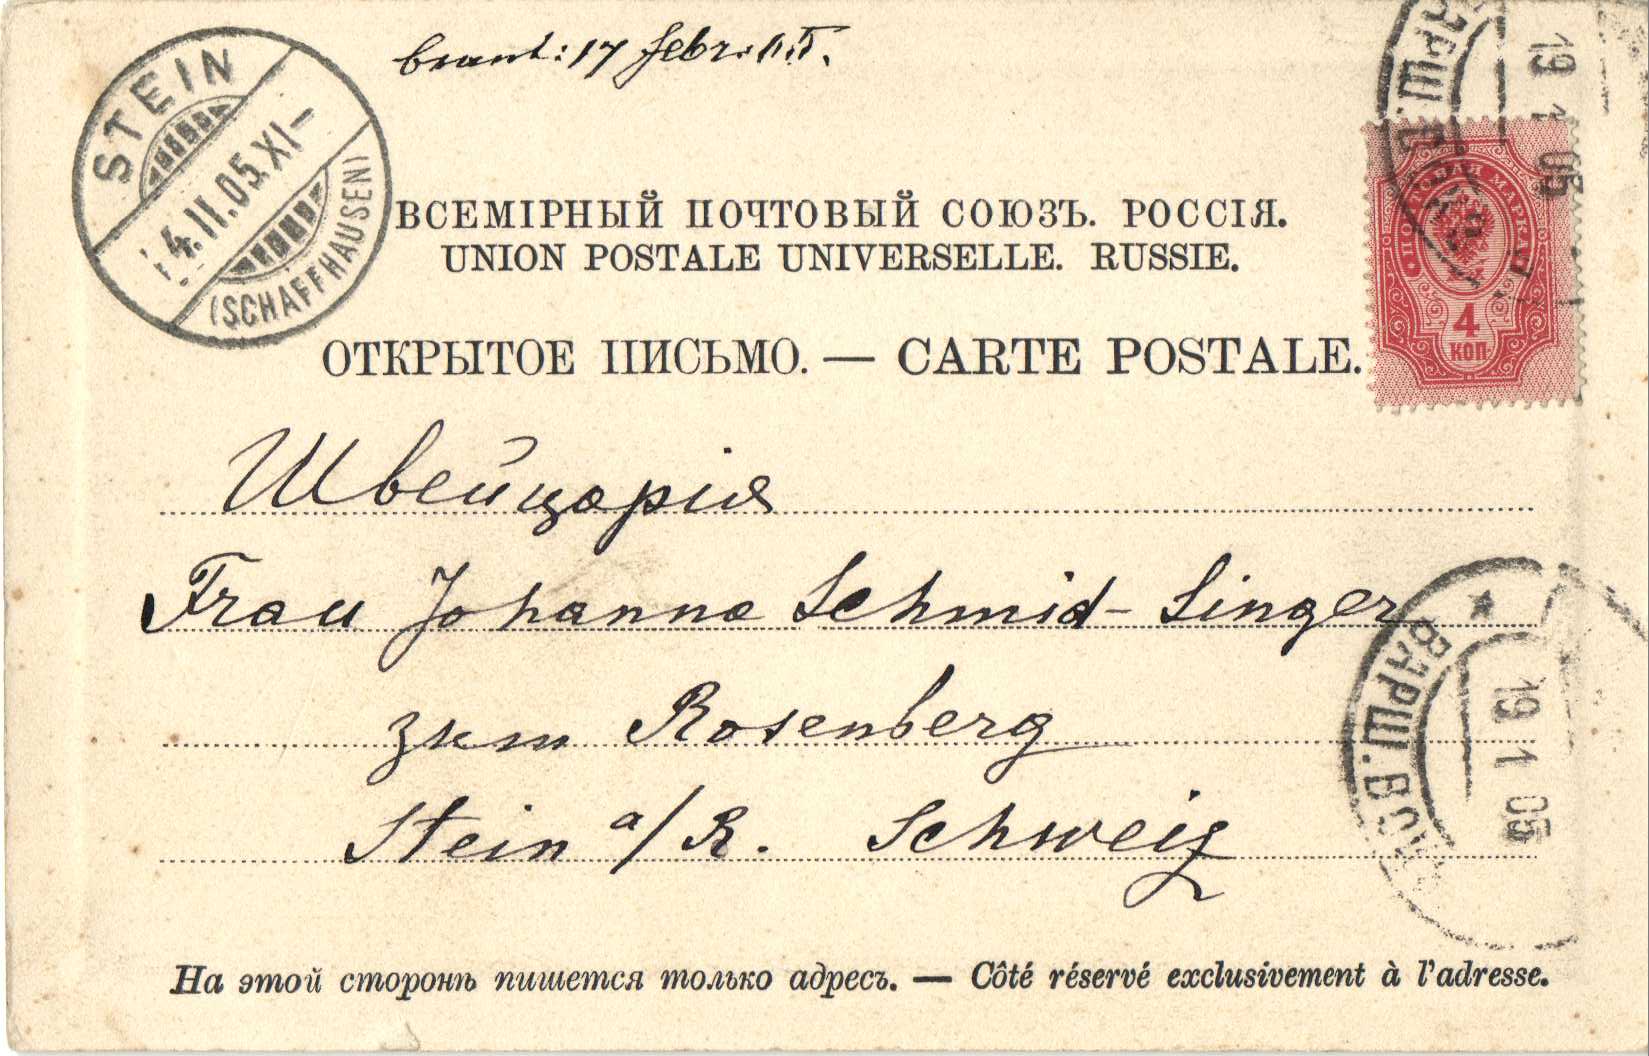 STEIN
4.II.05.XI–
(SCHAFFHAUSEN)
17 febr.
19 1 05
ПОЧТОВАЯ МАРКА
4
КОП
ВСЕМІРНЫЙ ПОЧТОВЫЙ СОЮЗЪ. РОССІЯ.
UNION POSTALE UNIVERSELLE. RUSSIE.
ОТКРЫТОЕ ПИСЬМО. — CARTE POSTALE.
Швейцарія
Frau Johanna Schmid-Singer
zum Rosenberg
Stein a/R. Schweiz
ВАРШ.В
19 1 05
На этой сторонѣ пишется только адресъ. — Côté réservé exclusivement à l'adresse.